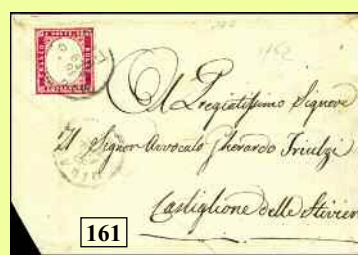 Al Pregiatissimo Signore
Il Signor Avvocato Gherardo Triulzi
Castiglione delle Stiviere
161